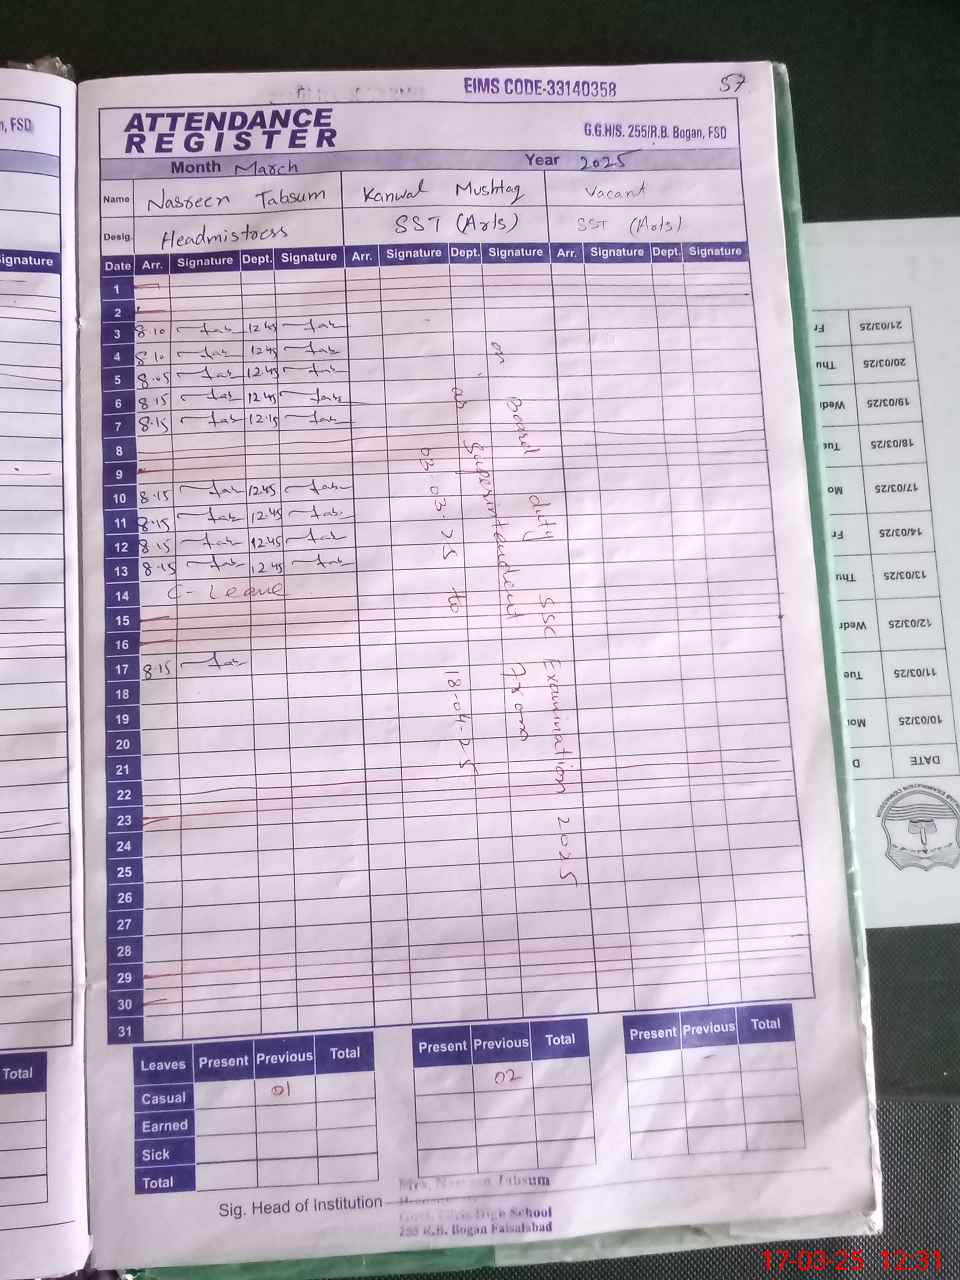 EIMS CODE-33140358
57
ATTENDANCE
REGISTER
G.G.H/S. 255/R.B. Bogan, FSD
Month March Year 2025
Name Nasreen Tabsum Kanwal Mushtaq Vacant
Desig. Headmistress SST (Arts) SST (Arts)
Date Arr. Signature Dept. Signature Arr. Signature Dept. Signature Arr. Signature Dept. Signature
1
2
3 8.10 12.45
4 8.10 12.45
5 8.05 12.45
6 8.15 12.45
7 8.15 12.15
8
9
10 8.15 12.45
11 8.15 12.45
12 8.15 12.45
13 8.15 12.45
14 C-Leave
15
16
17 8.15
18
19
20
21
22
23
24
25
26
27
28
29
30
31
on Board duty SSC Examination 2025
as Superintendent
03.03.25 to 18.04.25
Leaves Present Previous Total Present Previous Total Present Previous Total
Casual 01 02
Earned
Sick
Total
Sig. Head of Institution
Mrs. Nasreen Tabsum
Govt. Girls High School
255 R.B. Bogan Faisalabad
, FSD
Signature
Total
21/03/25 Fr
20/03/25 Thu
19/03/25 Wed
18/03/25 Tue
17/03/25 Mo
14/03/25 Fr
13/03/25 Thu
12/03/25 Wed
11/03/25 Tue
10/03/25 Mon
DATE D
17-03-25 12:31